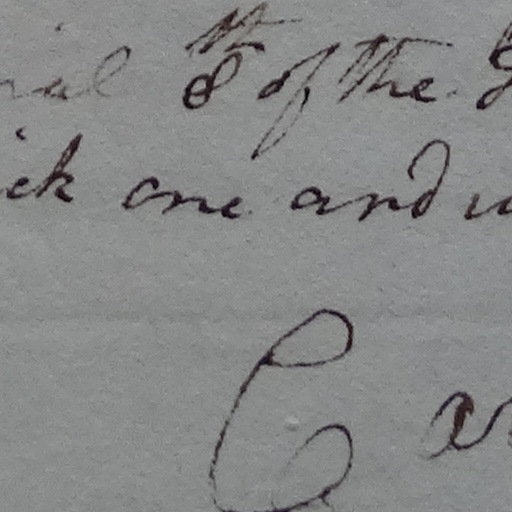 8th of the
ick one and
C